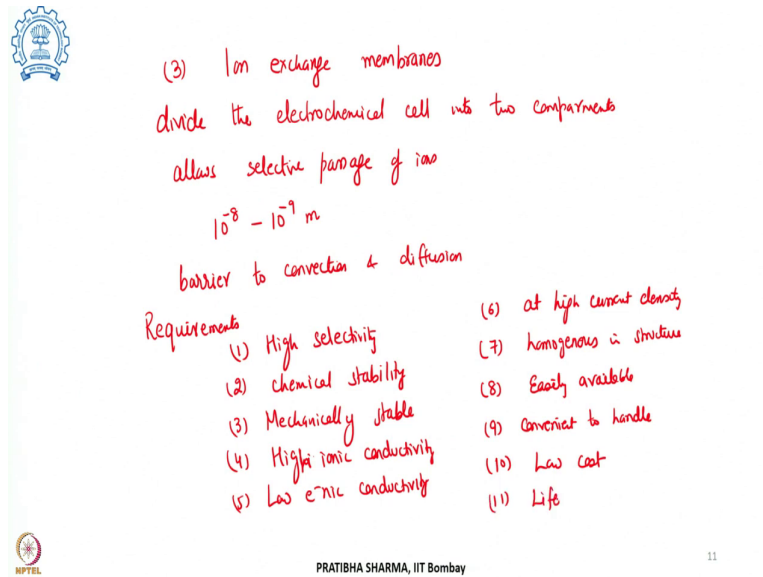 (3) Ion exchange membranes
divide the electrochemical cell into two comparments
allows selective passage of ions
10⁻⁸ – 10⁻⁹ m
barrier to convection & diffusion
Requirements
(1) High selectivity
(2) chemical stability
(3) Mechanically stable
(4) High ionic conductivity
(5) Low e⁻nic conductivity
(6) at high current density
(7) homogenous in structure
(8) Easily available
(9) Convenient to handle
(10) Low cost
(11) Life
NPTEL
PRATIBHA SHARMA, IIT Bombay
11